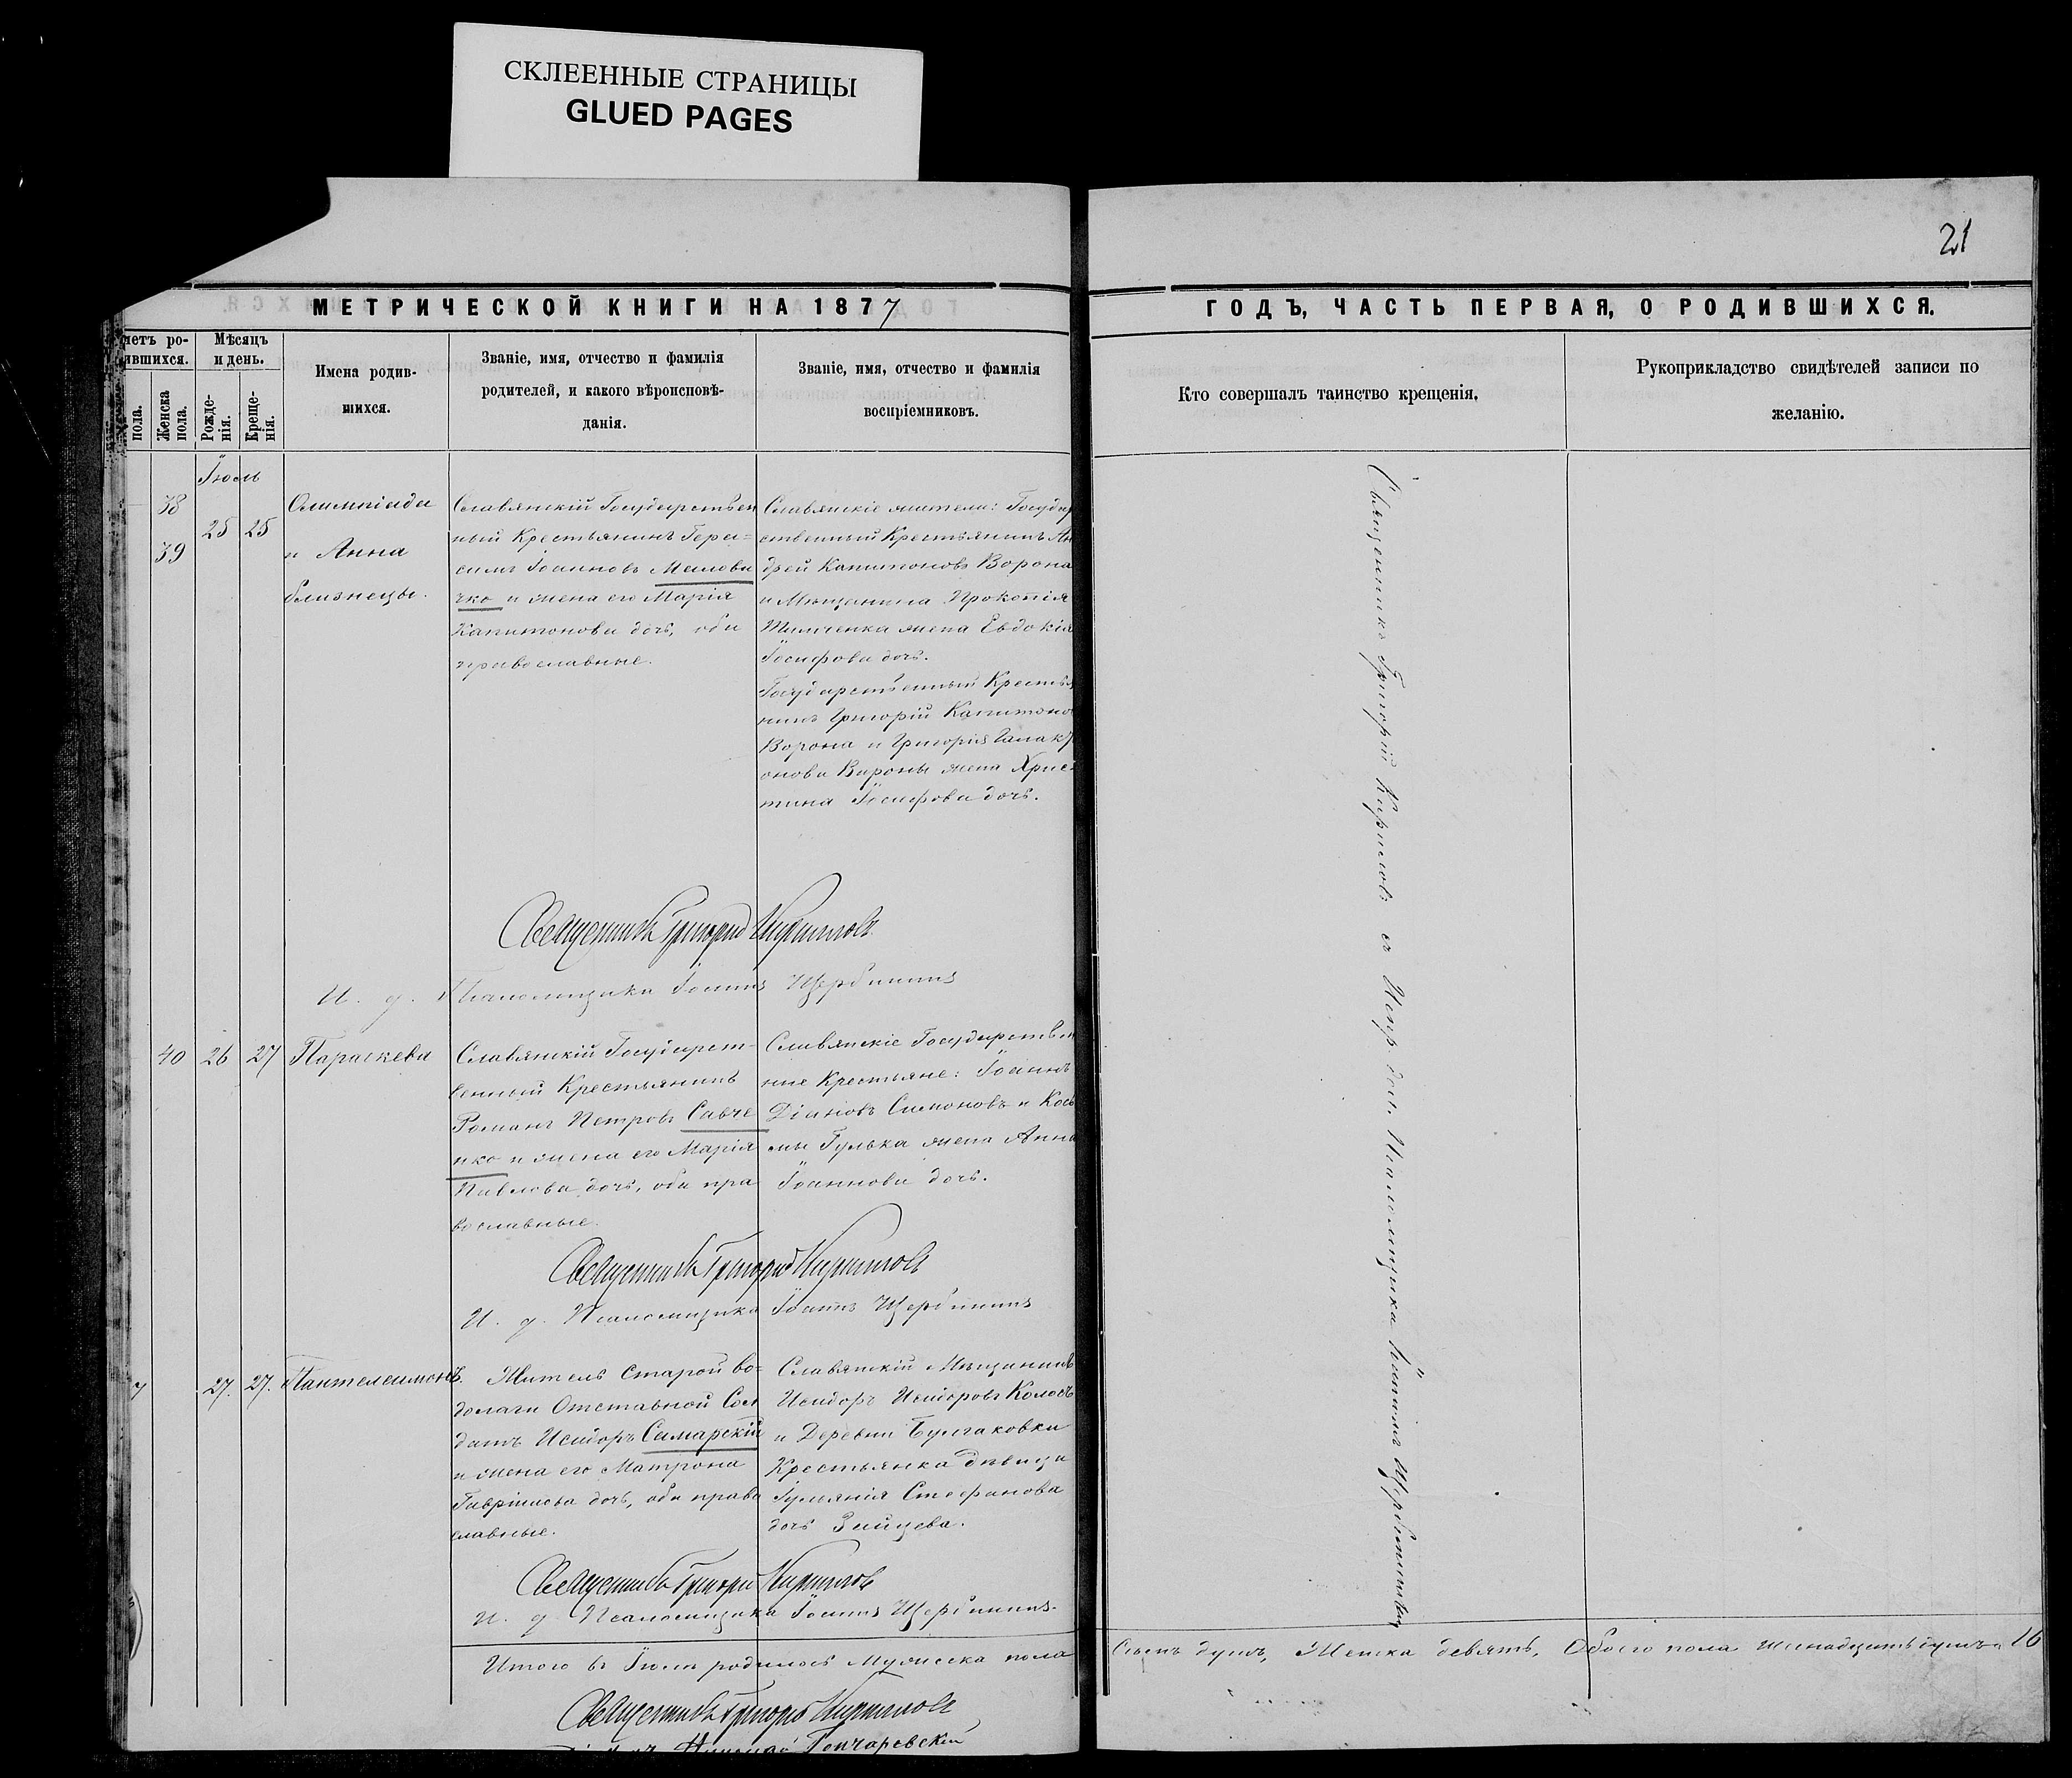 СКЛЕЕННЫЕ СТРАНИЦЫ
GLUED PAGES
21
МЕТРИЧЕСКОЙ КНИГИ НА 1877
ГОДЪ, ЧАСТЬ ПЕРВАЯ, О РОДИВШИХСЯ.
четъ ро-
ившихся.
пола.
Женска
пола.
Мѣсяцъ
и день.
Рожде-
нія.
Креще-
нія.
Имена родив-
шихся.
Званіе, имя, отчество и фамилія
родителей, и какого вѣроисповѣ-
данія.
Званіе, имя, отчество и фамилія
воспріемниковъ.
Кто совершалъ таинство крещенія.
Рукоприкладство свидѣтелей записи по
желанію.
Іюль
38
39
25 25
Олимпіада
и Анна
близнецы.
Славянскій Государствен
ный Крестьянинъ Гера=
симъ Іоанновъ
чко и жена его Марія
Капитонова дочь, оба
православные.
Славянскіе жители: Государ
ственный Крестьянинъ Ан
дрей Капитоновъ Ворона
и Мѣщанина Прокопія
жена Евдокія
Іосифова дочь.
Государственный Крестья
нинъ Григорій Капитоно
Ворона и Григорія
Вороны жена Хрис=
тина Іосифова дочь.
Священникъ Григорій Кириловъ
И. д. Псаломщика Іоаннъ Щербининъ
40 26 27 Параскева
Славянскій Государст-
венный Крестьянинъ
Романъ Петровъ Савче
нко и жена его Марія
Павлова дочь, оба пра
вославные.
Славянскіе Государствен
ные Крестьяне: Іоаннъ
Симоновъ и Кось
мы Гулька жена Анна
Іоаннова дочь.
Священникъ Григорій Кириловъ
И. д. Псаломщика Іоаннъ Щербининъ
7 27. 27. Пантелеимонъ.
Житель Старой во=
долаги Отставной Сол
датъ Исидоръ Самарскій
и жена его Матрона
Гавріилова дочь, оба право
славные.
Славянскій Мѣщанинъ
Исидоръ Исидоровъ Колосъ
и Деревни Булгаковки
Крестьянка дѣвица
Іуліанія Стефанова
дочь Зайцева.
Священникъ Григорій Кириловъ
И. д. Псаломщика Іоаннъ Щербининъ.
Итого въ Іюлѣ родилось Мужеска пола
Семь душъ, Женска девять, Обоего пола шестнадцать душъ 16
Священникъ Григорій Кириловъ
Гончаревскій
Священникъ Григорій Кириловъ съ Испр. дол. Псаломщика Іоанномъ Щербининымъ